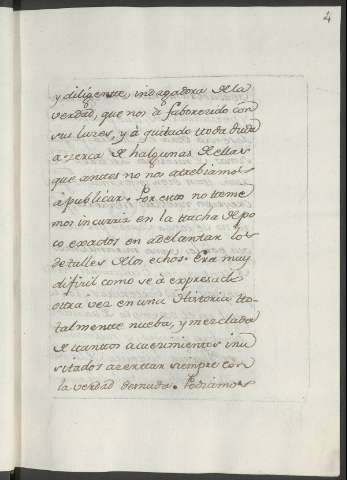 4
y diligentte, indagadora de la
verdad, que nos à faborecido con
sus luzes, y à quitado ttoda duda
azerca de halgunas de ellas
que anttes no nos atrebiamos
à publicar. Por estto no tteme
mos incurrir en la ttacha de po
co exactos en adelantar los
detalles de los echos. Era muy
dificil como se à expresado
ottra vez en una Historia tto-
talmentte nueba, y mezclada
de ttanttos acaecimientos inu
sitados azerttar siempre con
la verdad desnuda. Podriamos